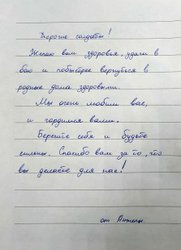 Дорогие солдаты!
Желаю вам здоровья, удачи в
бою и побыстрее вернуться в
родные дома здоровыми.
Мы очень любим вас,
и гордимся вами.
Берегите себя и будьте
сильны. Спасибо вам за то, что
вы делаете для нас!
от